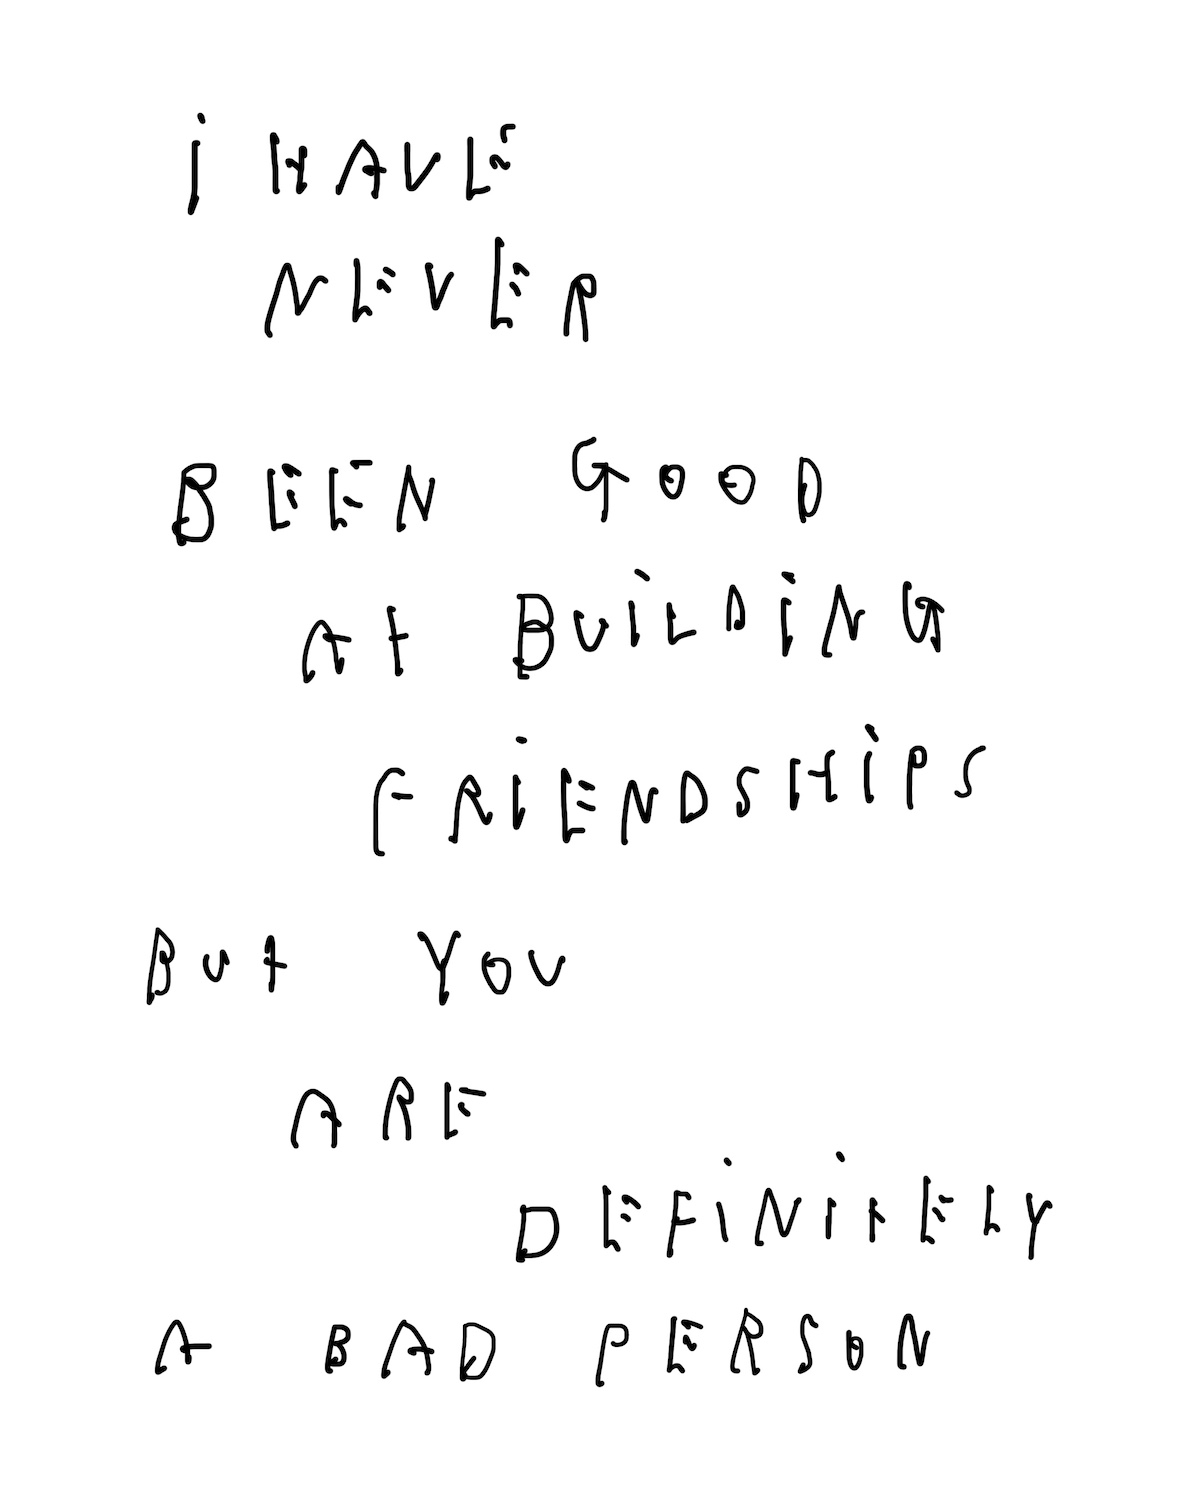 i HAVE
NEVER
BEEN GOOD
At BUiLDiNG
FRiENDSHiPS
BUt YOU
ARE
DEFiNitELY
A BAD PERSON